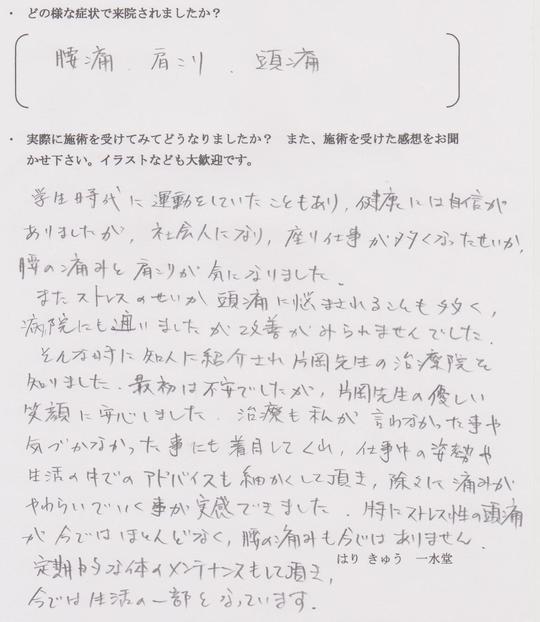 ・ どの様な症状で来院されましたか？
腰痛．肩こり．頭痛
・ 実際に施術を受けてみてどうなりましたか？　また、施術を受けた感想をお聞
かせ下さい。イラストなども大歓迎です。
学生時代に運動をしていたこともあり，健康には自信が
ありましたが，社会人になり，座り仕事が多くなったせいか，
腰の痛みと肩こりが気になりました．
またストレスのせいか頭痛に悩まされることも多く，
病院にも通いましたが改善がみられませんでした．
そんな時に知人に紹介され片岡先生の治療院を
知りました．最初は不安でしたが，片岡先生の優しい
笑顔に安心しました．治療も私が言わなかった事や
気づかなかった事にも着目してくれ，仕事中の姿勢や
生活の中でのアドバイスも細かくして頂き，除々に痛みが
やわらいでいく事が実感できました．特にストレス性の頭痛
が今ではほとんどなく，腰の痛みも今ではありません．
はり きゅう 一水堂
定期的な体のメンテナンスもして頂き，
今では生活の一部となっています．